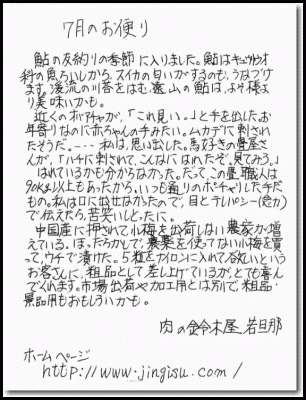 7月のお便り
鮎の友釣りの季節に入りました。鮎はキュウリウオ
科の魚らしいから、スイカの匂いがするのも、うなづけ
ます。渓流の川苔をはむ、遠山の鮎は、より様よ
り美味いかも。
近くのボヴァチャが、「これ見い。」と手を出した。お
年寄りなのに赤ちゃんの手みたい。ムカデに刺され
たそうだ。---- 私は、思い出した。馬好きの畳屋さ
んが、「ハチに刺されて、こんなにはれたぞ、見てみろ。」
はれているかも分からなかった。だって、この畳職人は
90kg以上もあったから、いつも通りのポチャリした手だ
もの。私は口に出せなかったので、目とテレパシー(念力)
で伝えたら、苦笑いしとったに。
中国産に押されて小梅を出荷しない農家が増
えている。ほったらかしで、農薬を使ってない小梅を買
って、ウチで漬けた。5粒をナイロンに入れて欲しいという
お客さんに、粗品として差し上げているが、とても喜ん
でくれます。市場出荷や加工用とは別で、粗品・
景品用もおもしろいかも。
肉の鈴木屋 若旦那
ホームページ
http://www.jingisu.com/